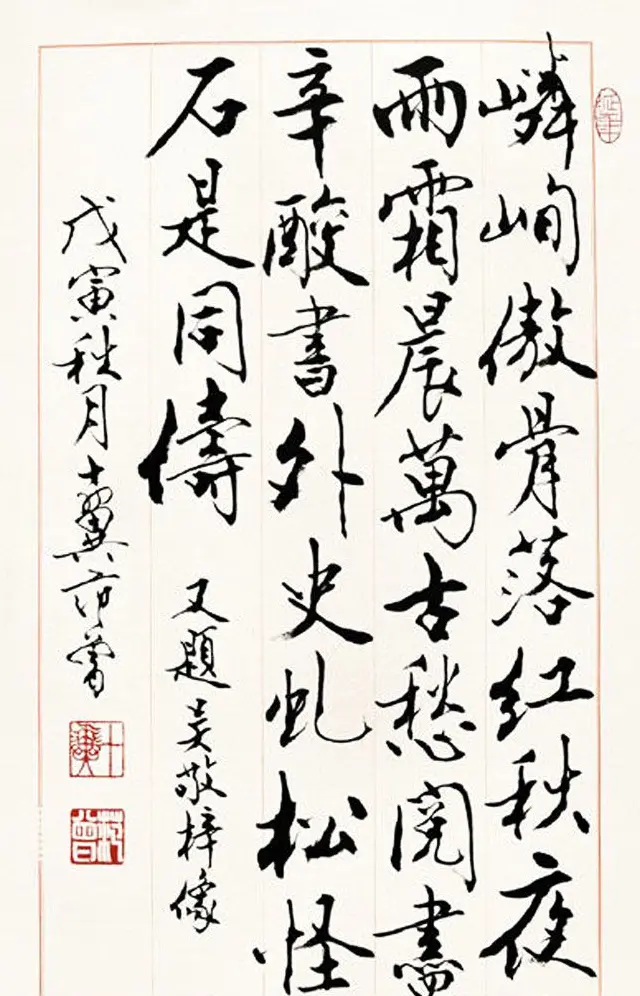 延年
嶙峋傲骨落红秋夜
雨霜晨萬古愁閱盡
辛酸書外史虬松怪
石是同儔
又題吴敬梓像
戊寅秋月十翼范曾
十翼
范曾